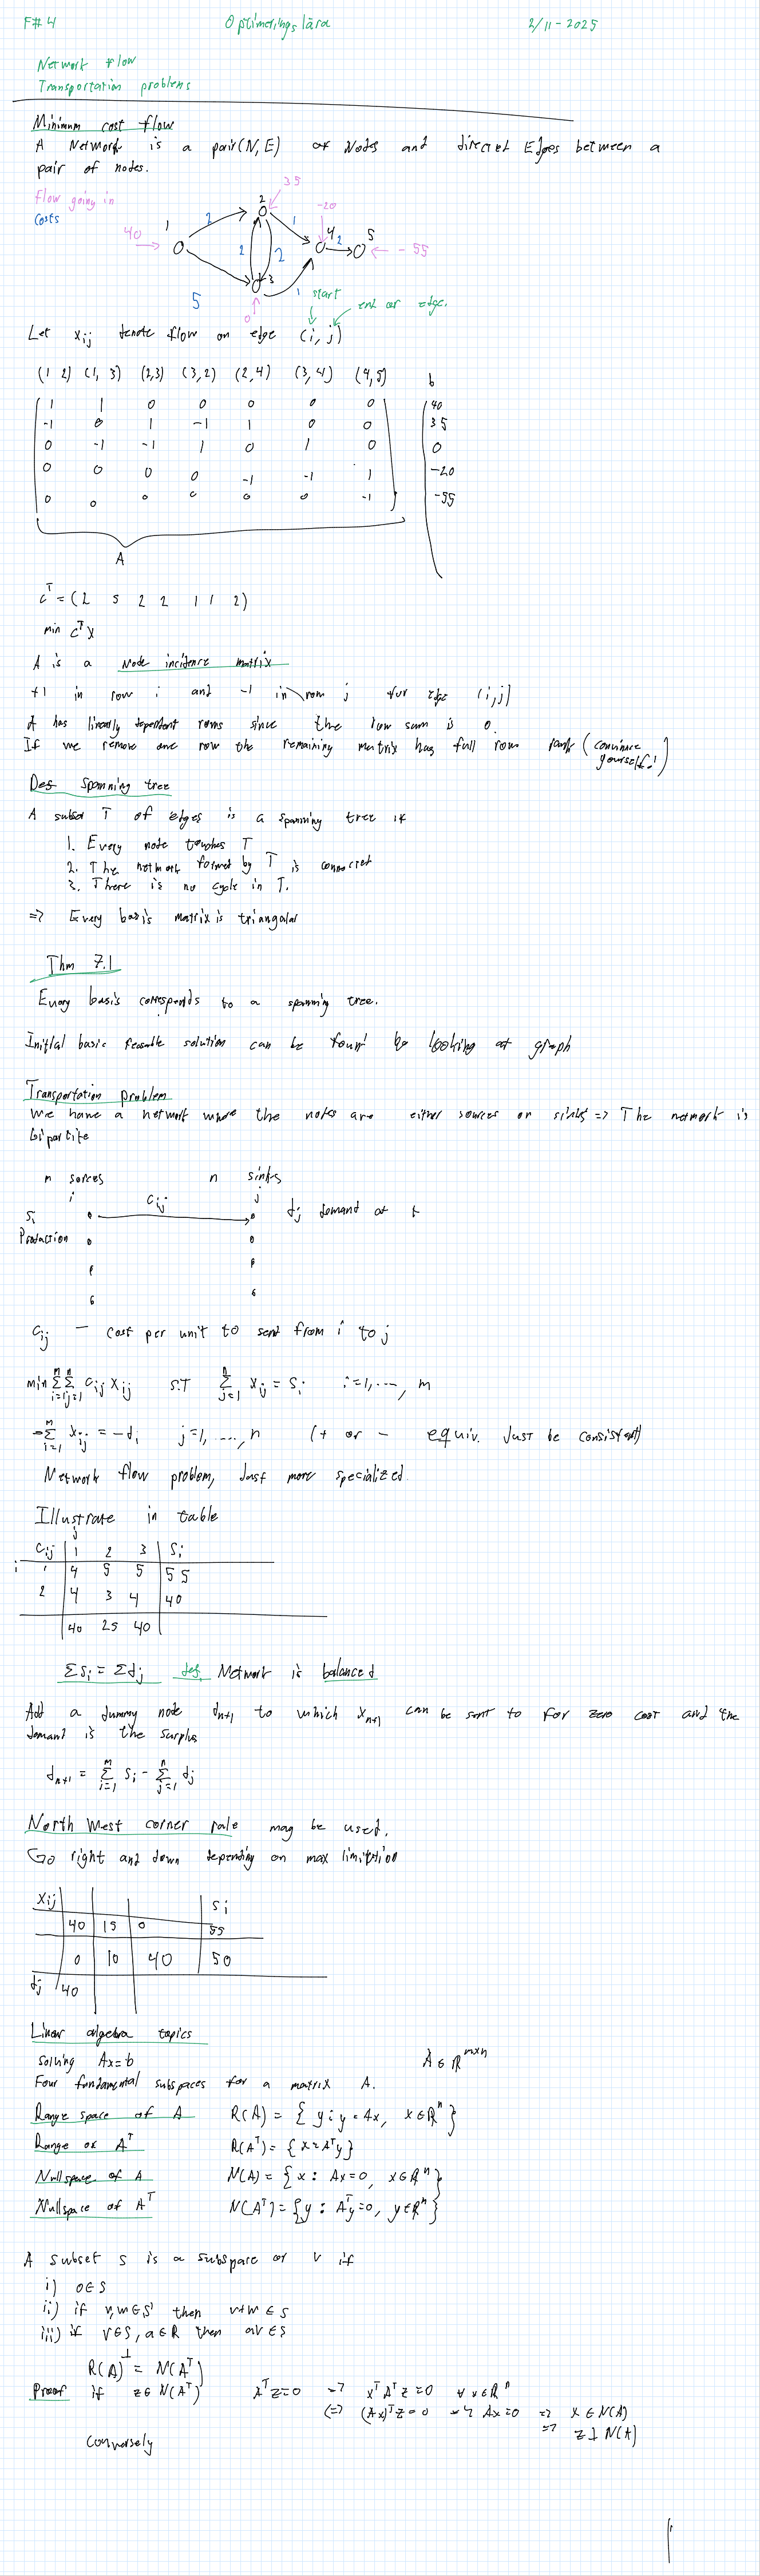 F#4 Optimeringslära 2/11-2025
Network flow
Transportation problems
Minimum cost flow
A Network is a pair (N, E) of Nodes and directed Edges between a
pair of nodes.
Flow going in
Costs
40 1 2 2 35 1 -20 4 2 5 -55
2 2 3
5 0 1
start end of edge.
Let xij denote flow on edge (i, j)
(1 2) (1, 3) (2,3) (3,2) (2,4) (3,4) (4,5) b
1 1 0 0 0 0 0 40
-1 0 1 -1 1 0 0 35
0 -1 -1 1 0 1 0 0
0 0 0 0 -1 -1 1 -20
0 0 0 0 0 0 -1 -55
A
c^T = (2 5 2 2 1 1 2)
min c^T x
A is a Node incidence matrix
+1 in row i and -1 in row j for edge (i,j)
A has linearly dependent rows since the row sum is 0.
If we remove one row the remaining matrix has full row rank (convince
yourself!)
Def Spanning tree
A subset T of edges is a spanning tree if
1. Every node touches T
2. The network formed by T is connected
3. There is no cycle in T.
=> Every basis matrix is triangular
Thm 7.1
Every basis corresponds to a spanning tree.
Initial basic feasable solution can be found by looking at graph
Transportation problem
We have a network where the nodes are either sources or sinks => The network is
bipartite
m sorces n sinks
i cij j
si dj demand at
Production
cij - cost per unit to sent from i to j
min Σ_{i=1}^m Σ_{j=1}^n cij xij S.T Σ_{j=1}^n xij = si i=1,...., m
-Σ_{i=1}^m xij = -di j=1, ...., n (+ or - equiv. Just be consistent)
Network flow problem, Just more specialized.
Illustrate in table
j
cij 1 2 3 si
i 1 4 5 5 55
2 4 3 4 40
40 25 40
Σsi = Σdj def. Network is balanced
Add a dummy node dn+1 to which xn+1 can be sent to for zero cost and the
demand is the surplus
dn+1 = Σ_{i=1}^m si - Σ_{j=1}^n dj
North West corner rule may be used.
Go right and down depending on max limitation
xij si
40 15 0 55
0 10 40 50
dj 40
Linear algebra topics
Solving Ax=b A ∈ R^{m×n}
Four fundamental subspaces for a matrix A.
Range space of A R(A) = { y : y = Ax, x∈R^n }
Range of A^T R(A^T) = { x = A^T y }
Nullspace of A N(A) = { x : Ax=0, x∈R^n }
Nullspace of A^T N(A^T) = { y : A^T y=0, y∈R^n }
A subset S is a subspace of V if
i) 0∈S
ii) if v,w ∈ S then v+w ∈ S
iii) if v∈S, a∈R then av∈S
R(A)^⊥ = N(A^T)
Proof if z∈N(A^T) A^T z=0 => x^T A^T z = 0 ∀ x∈R^n
<=> (Ax)^T z = 0 Ax=0 => x ∈ N(A)
=> z ⊥ N(A)
Conversely